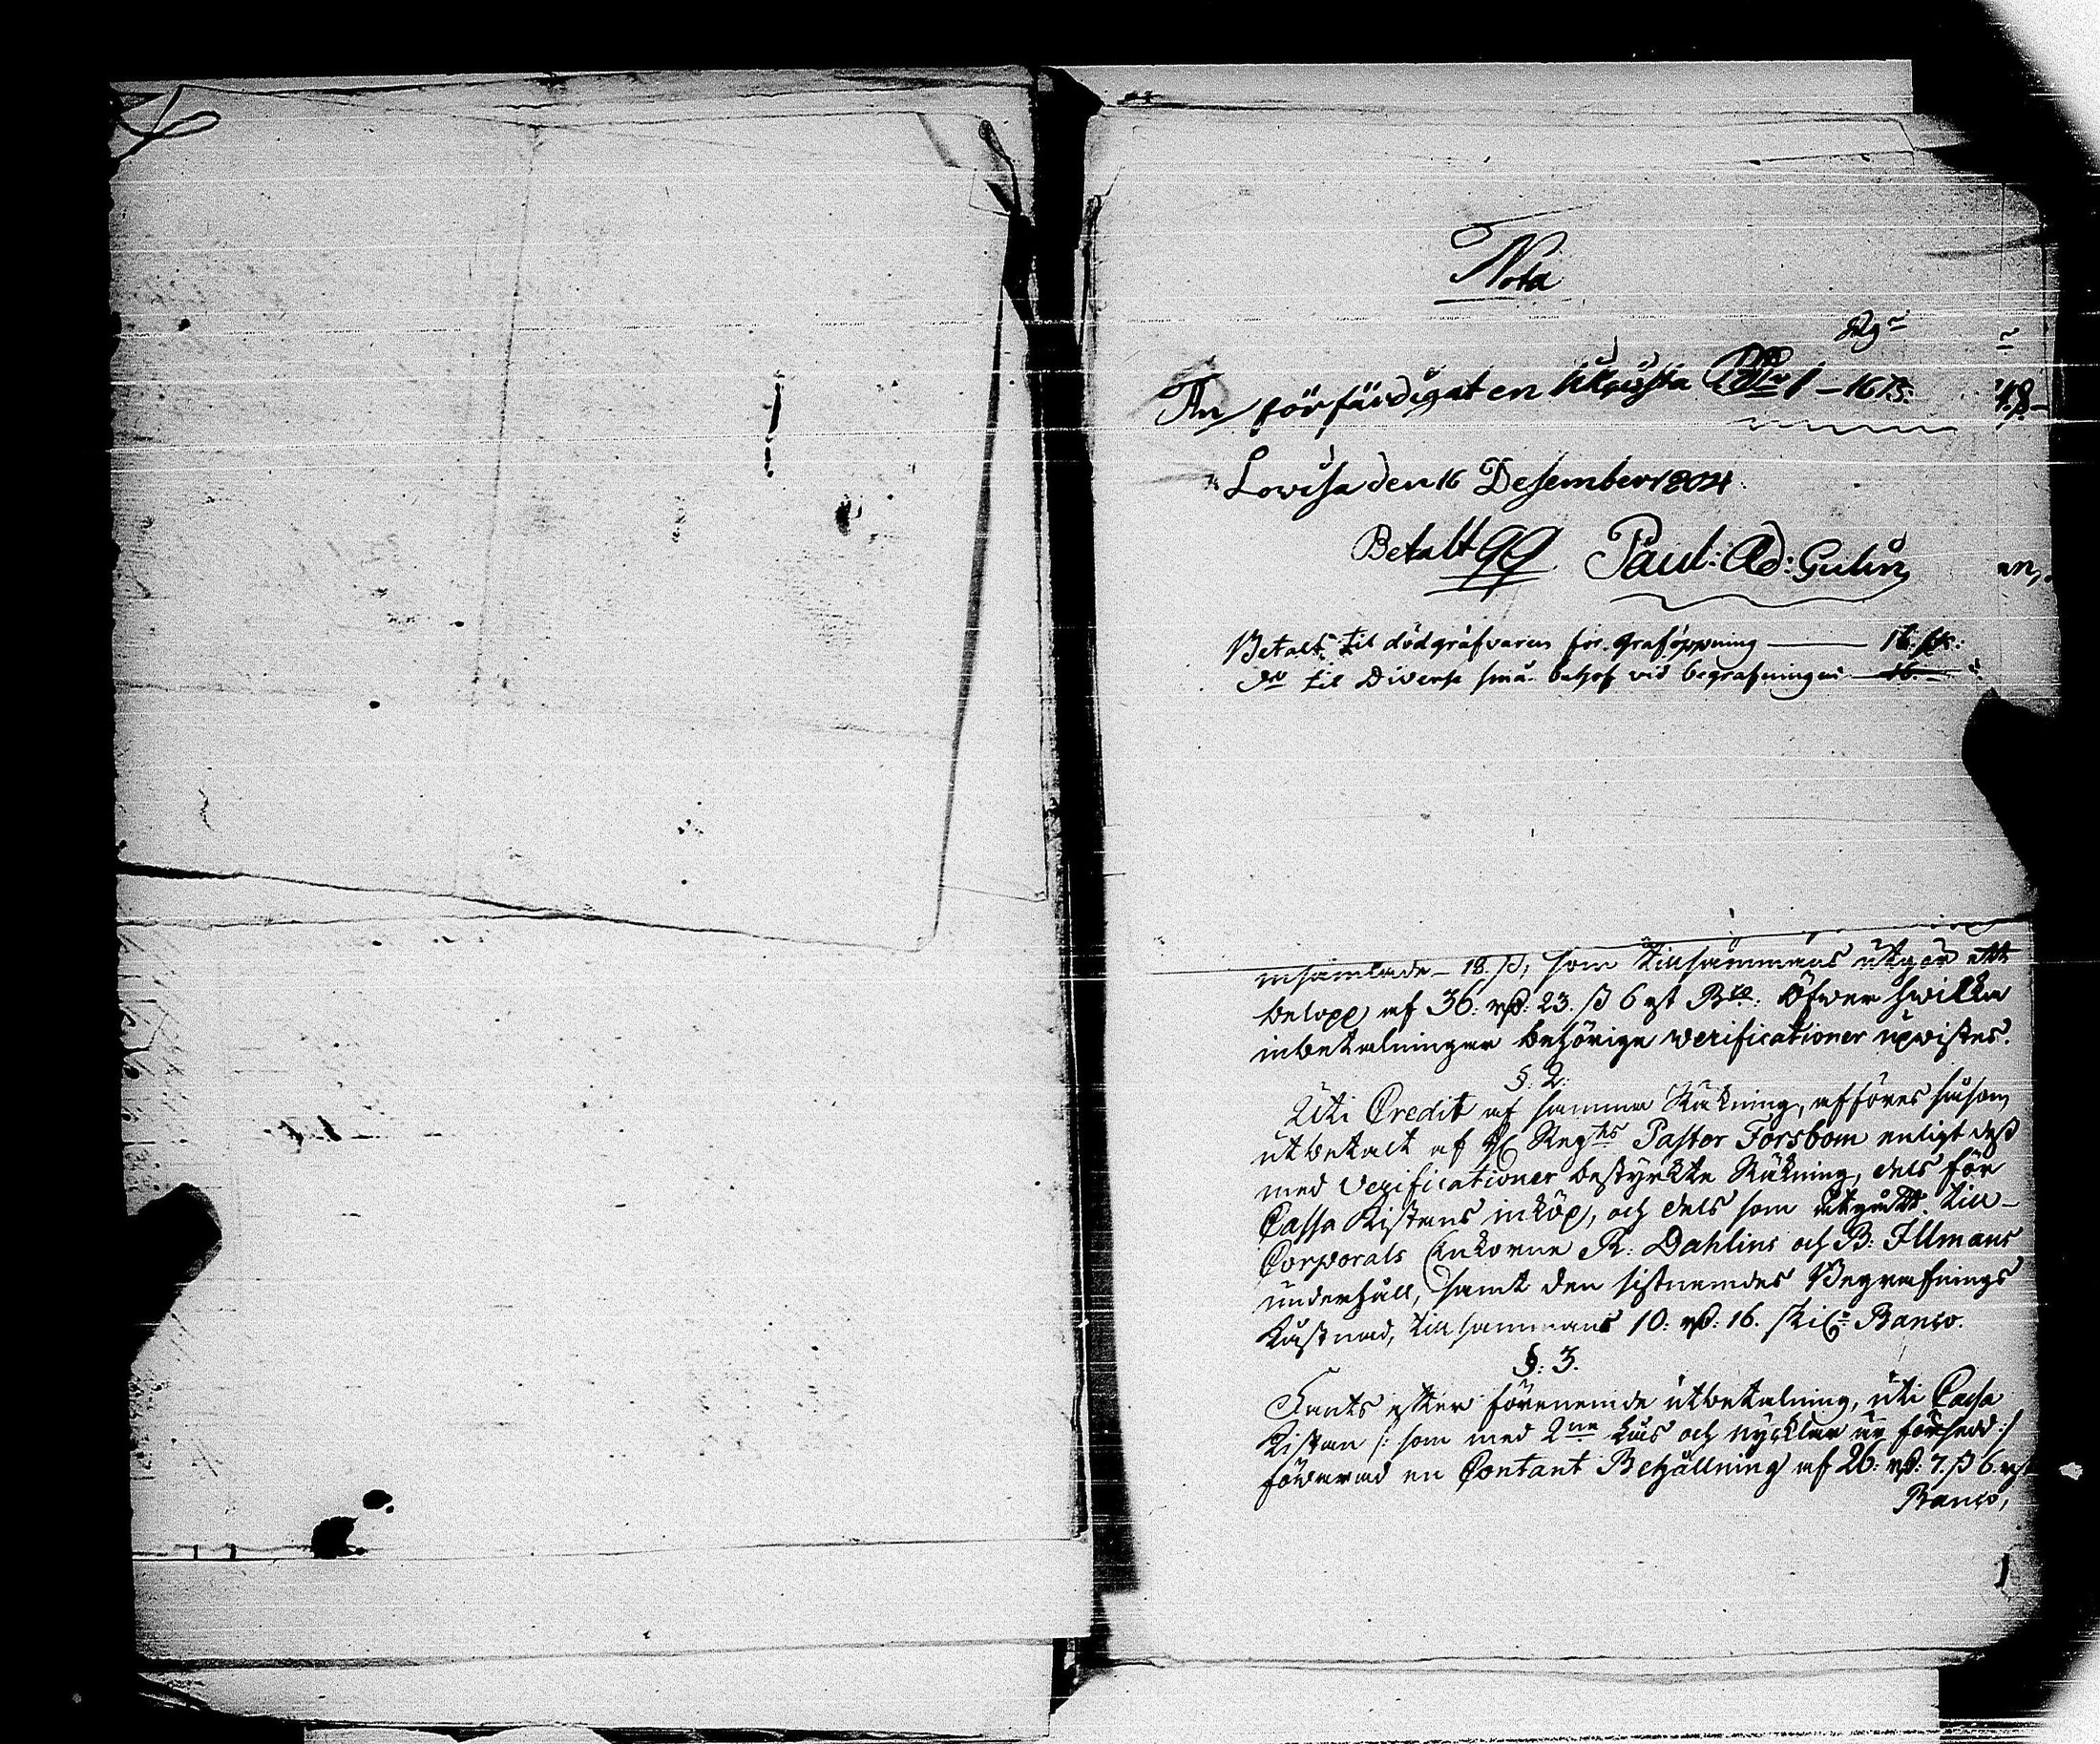 Nota
Rg
An förfärdigat en likkista Rdr 1 – 16 ß:
Lovisa den 16 Desember 1804
Betalt Paul: Ad: Gulin
Betalt til dödgräfvaren för graföppning — 16 sk:
do til Diverse små behof vid begrafningen — 16. —
insamlade – 18. ß, som tillsammans utgör ett
belopp af 36: rd: 23. ß 6 rst Bco: Öfwer hwilka
inbetalningar behörige verificationer upvistes.
§: 2:
Uti Credit af samma Räkning, afföres såsom
utbetalt af Regts Pastor Forsbom enligt dess
med Verificationer bestyrkte Räkning, dels för
Cassa Kistans inköp, och dels som utgått till
Corporals Enkorne R: Dahlins och B: Illmans
underhåll, samt den sistnemdes Begrafnings
kåstnad, tillsammans 10: rd: 16. skil: Banco.
§: 3.
Fants efter förenemde utbetalning, uti Cassa
Kistan /: som med 2ne lås och nycklar är försedd :/
förvarad en Contant Behållning af 26: rd: 7. ß 6 rst
Banco,